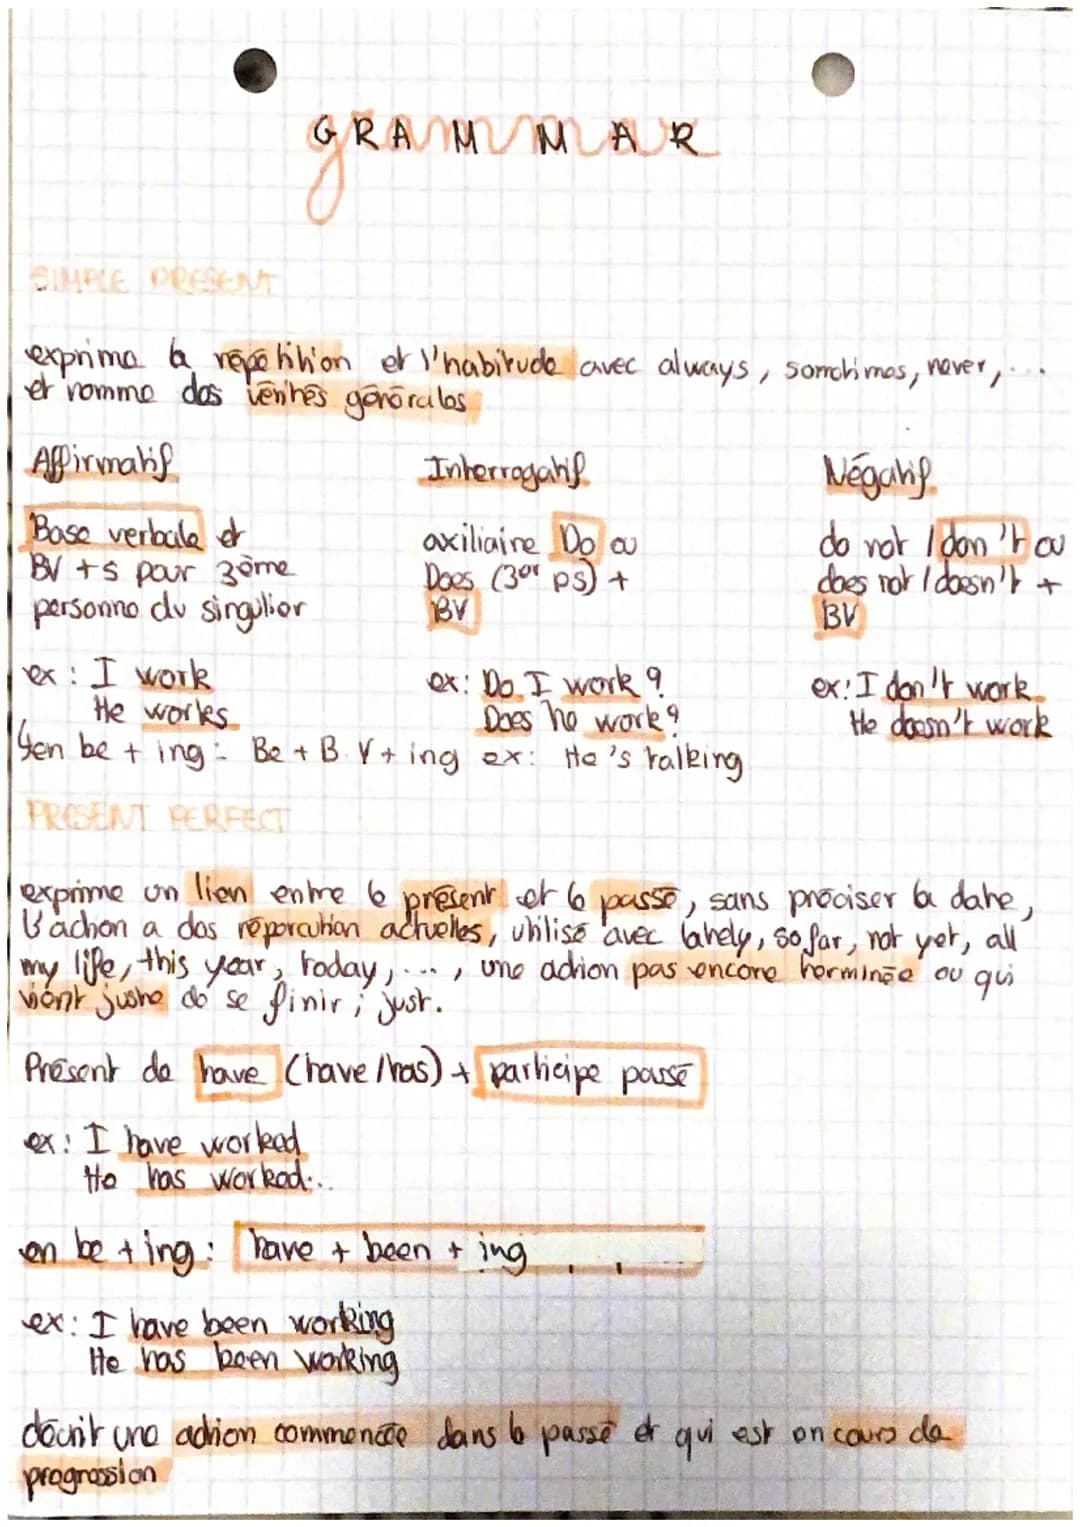 GRAMMAR
SIMPLE PRESENT
exprime la répétition et l'habitude avec always, sometimes, never,...
et nomme des vérités générales
Affirmatif Interrogatif Négatif
Base verbale et axiliaire Do ou do not / don't ou
BV +s pour 3ème Does (3er ps) + does not / doesn't +
personne du singulier BV BV
ex : I work ex: Do I work ? ex: I don't work
He works Does he work? He doesn't work
en be + ing : Be + B.V + ing ex: He's talking
PRESENT PERFECT
exprime un lien entre le présent et le passé, sans préciser la date,
L'action a des réparcution actuelles, utilisé avec lately, so far, not yet, all
my life, this year, today, ..., une action pas encore terminée ou qui
vient juste de se finir ; just.
Présent de have (have/has) + participe passé
ex: I have worked
He has worked...
en be + ing : have + been + ing
ex: I have been working
He has been working
décrit une action commencée dans le passé et qui est en cours de
progression